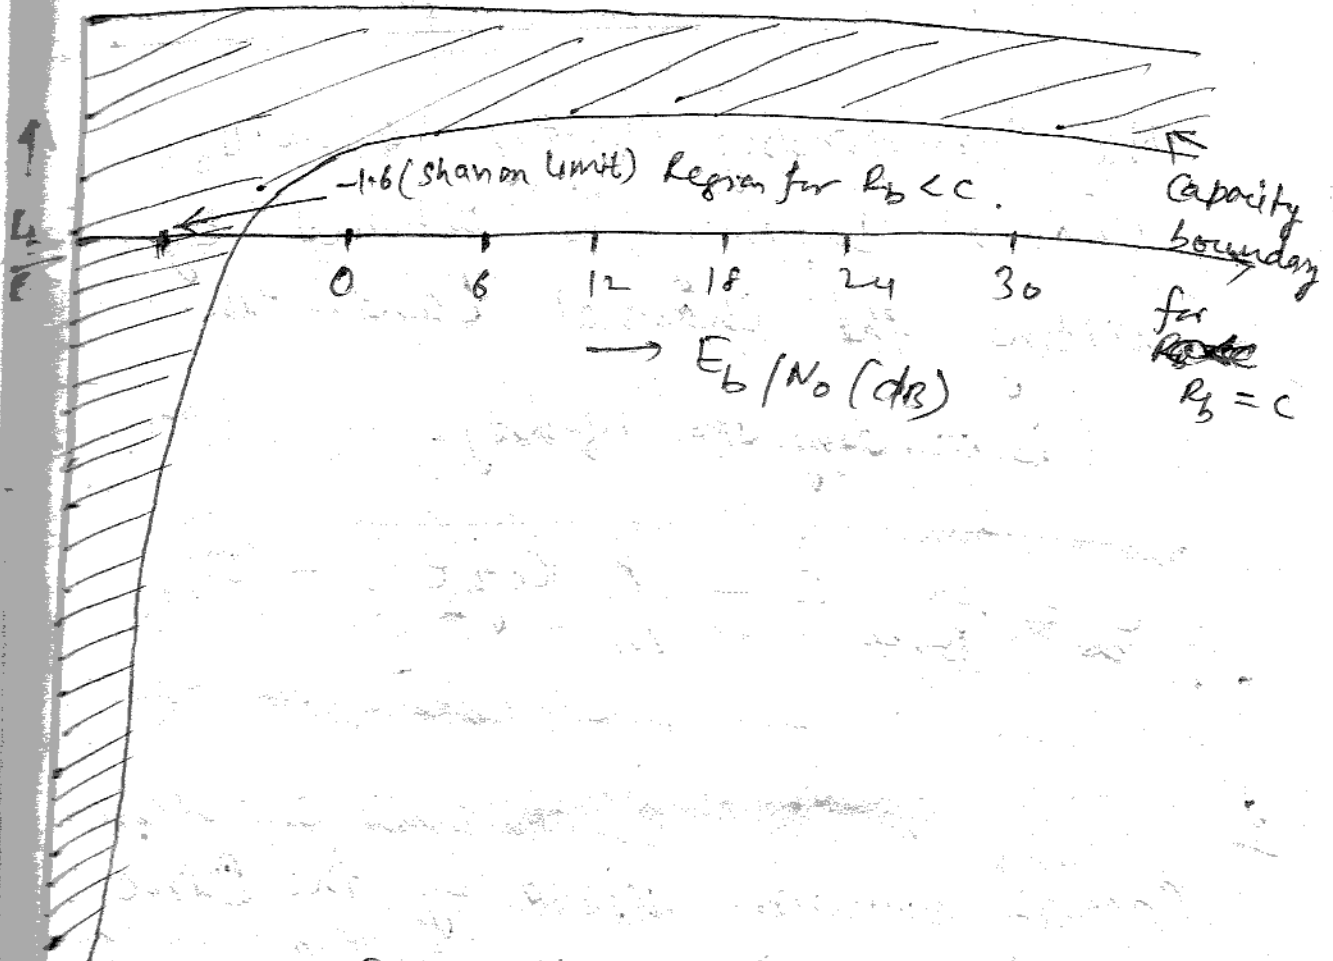 -1.6 (Shanon limit) Region for Rb < C.
Capacity
boundary
for
Rb = C
0 6 12 18 24 30
→ Eb/N0 (dB)